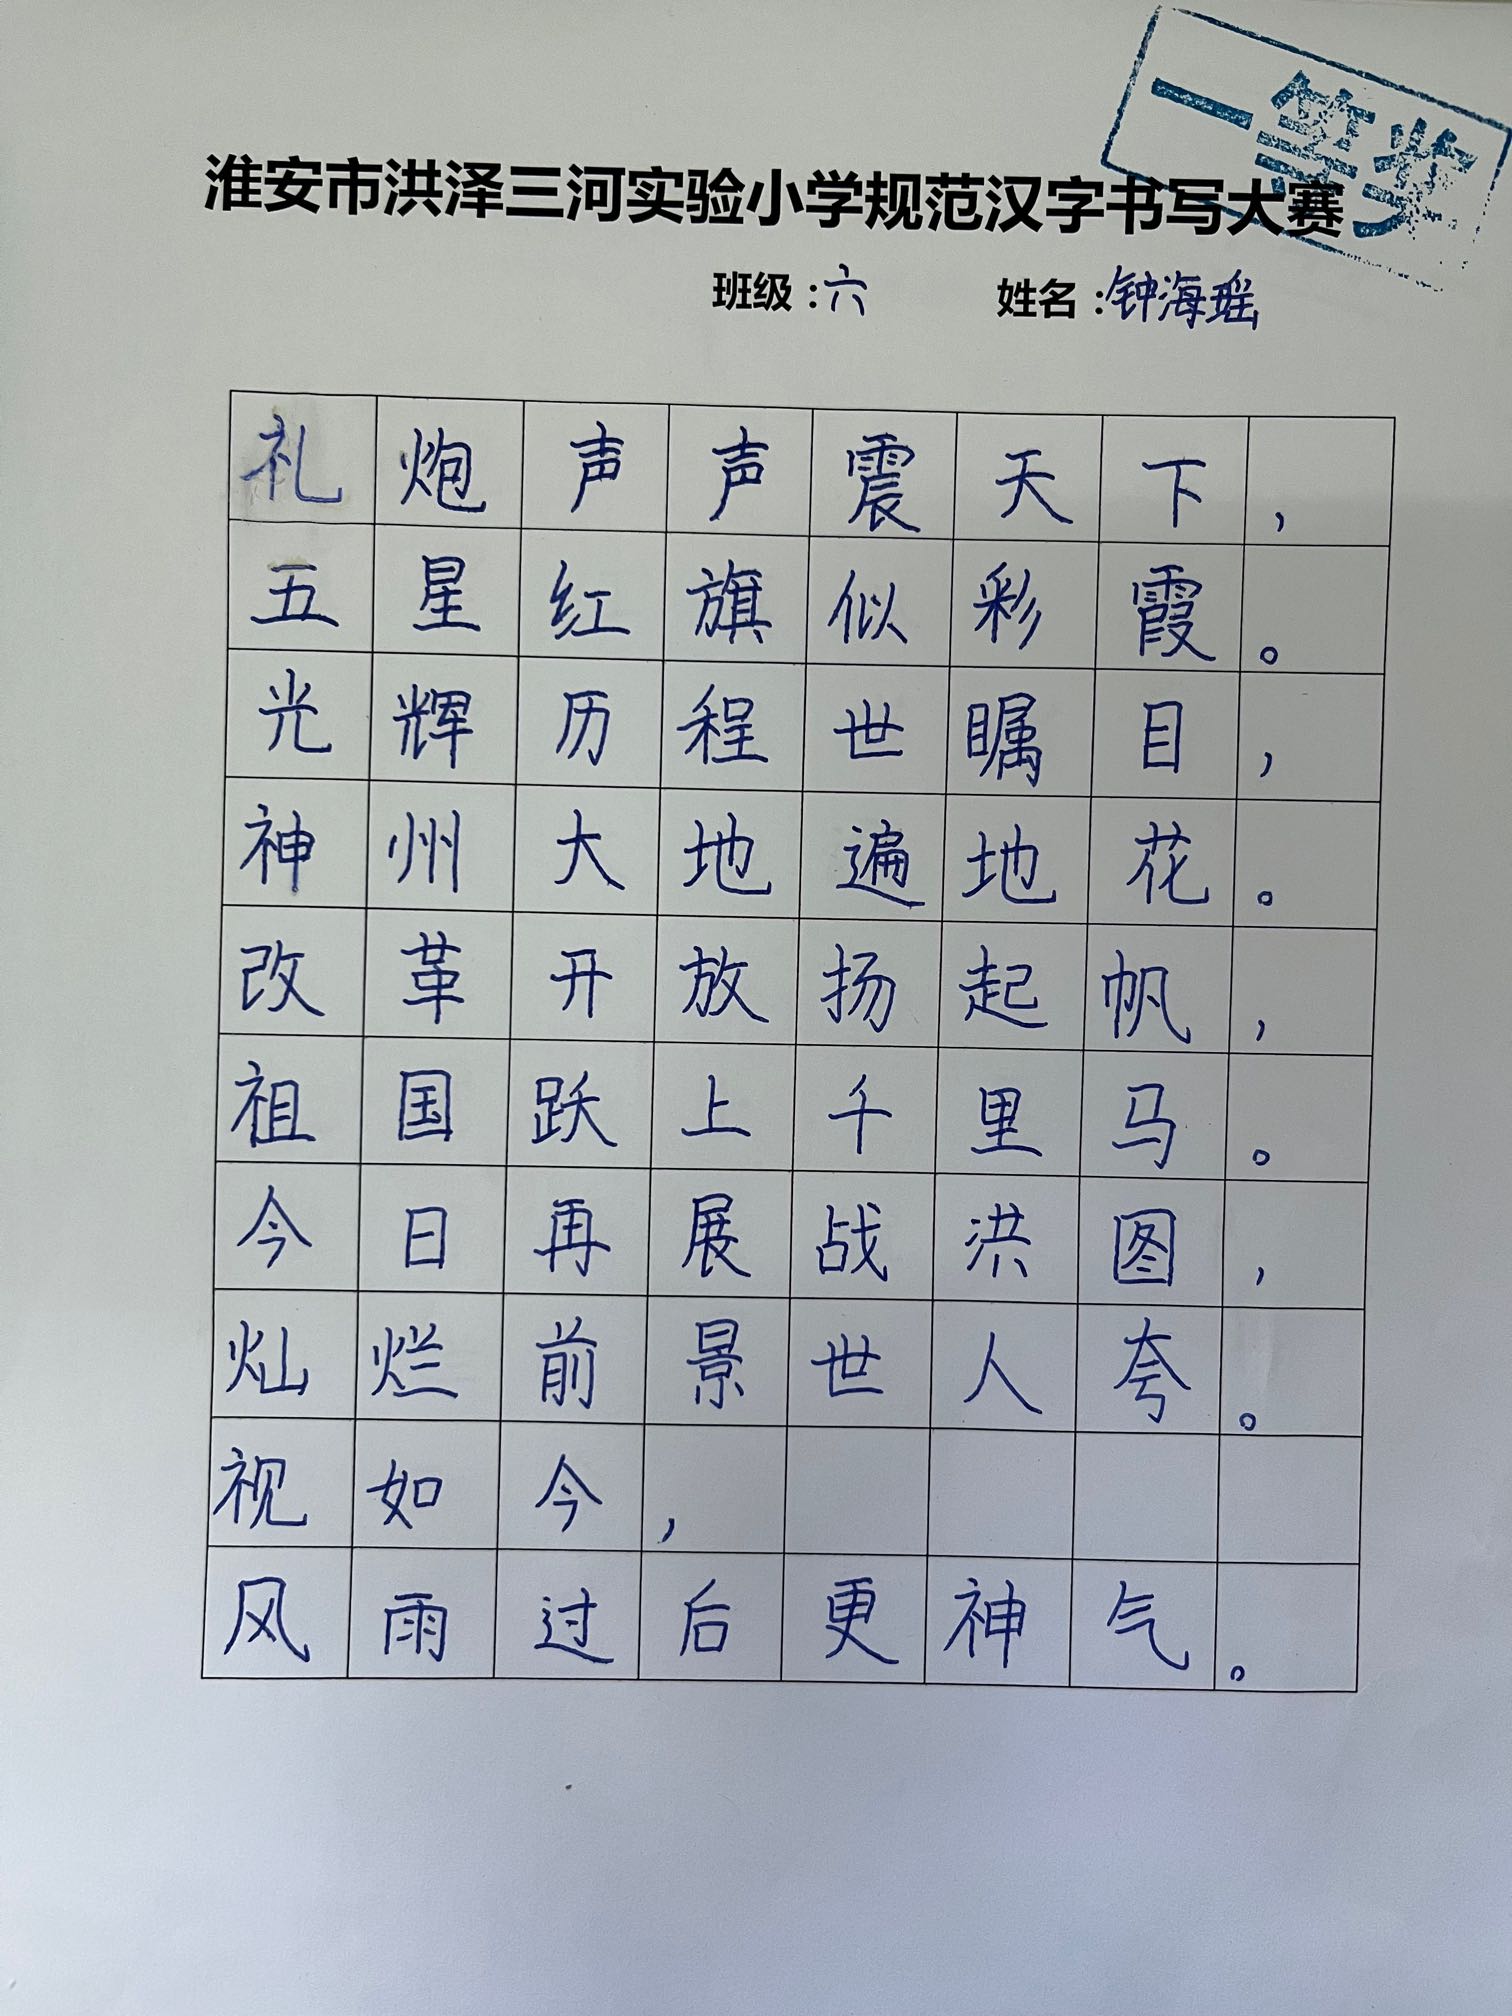 一等奖
淮安市洪泽三河实验小学规范汉字书写大赛
班级：六 姓名：钟海瑶
礼炮声声震天下，
五星红旗似彩霞。
光辉历程世瞩目，
神州大地遍地花。
改革开放扬起帆，
祖国跃上千里马。
今日再展战洪图，
灿烂前景世人夸。
视如今，
风雨过后更神气。